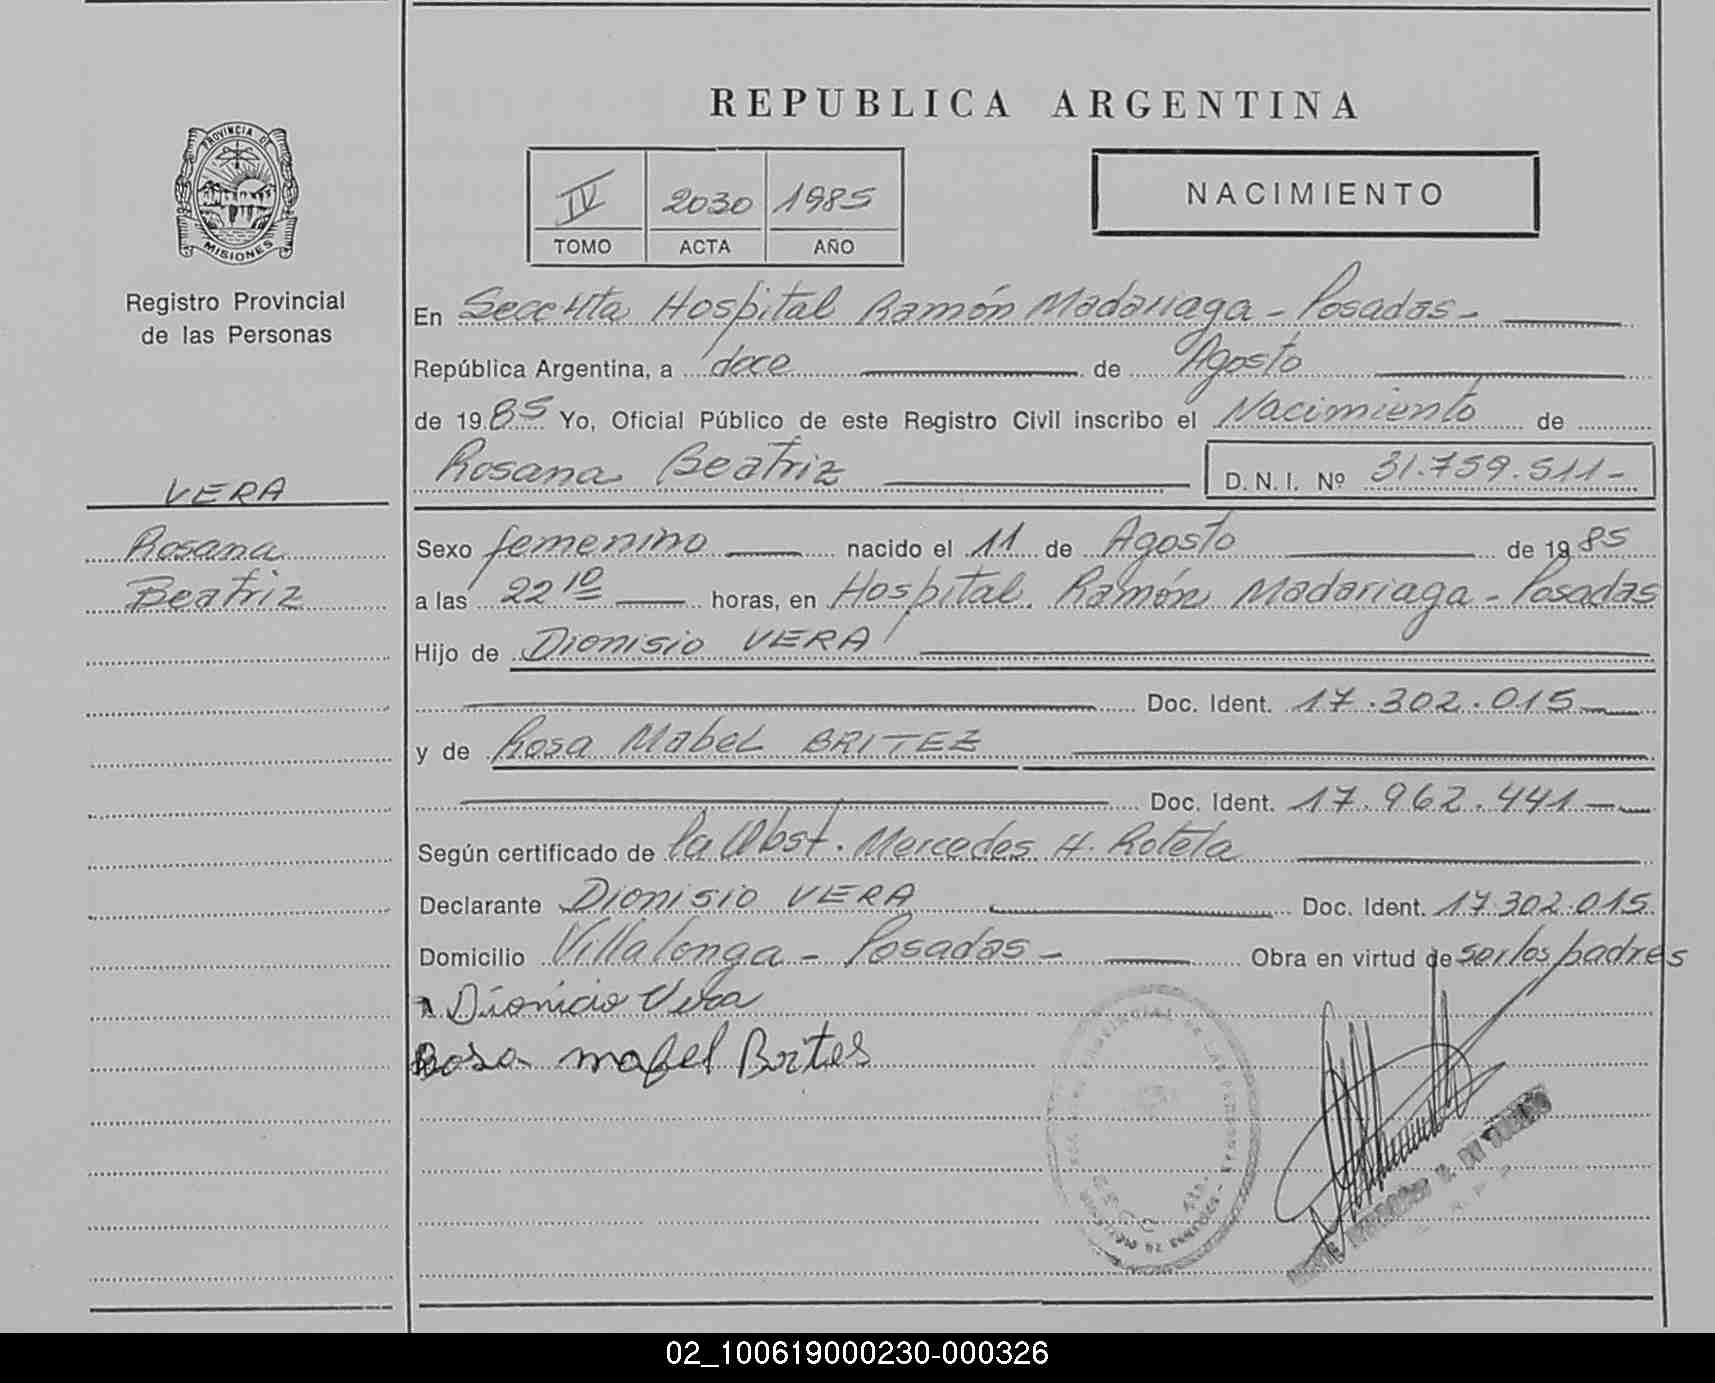 REPUBLICA ARGENTINA
PROVINCIA DE
MISIONES
Registro Provincial
de las Personas
IV 2030 1985
TOMO ACTA AÑO
NACIMIENTO
En Secc 4ta Hospital Ramón Madariaga - Posadas -
República Argentina, a doce de Agosto
de 1985 Yo, Oficial Público de este Registro Civil inscribo el Nacimiento de
Rosana Beatriz D.N.I. Nº 31.759.511-
VERA
Rosana
Beatriz
Sexo femenino nacido el 11 de Agosto de 1985
a las 22 10 horas, en Hospital Ramón Madariaga - Posadas
Hijo de Dionisio VERA
Doc. Ident. 17.302.015
y de Rosa Mabel BRITEZ
Doc. Ident. 17.962.441
Según certificado de la Obst. Mercedes H. Rotela
Declarante Dionisio VERA Doc. Ident. 17.302.015
Domicilio Villalonga - Posadas - Obra en virtud de ser los padres
Dionicio Vera
Rosa mabel Brites
02_100619000230-000326